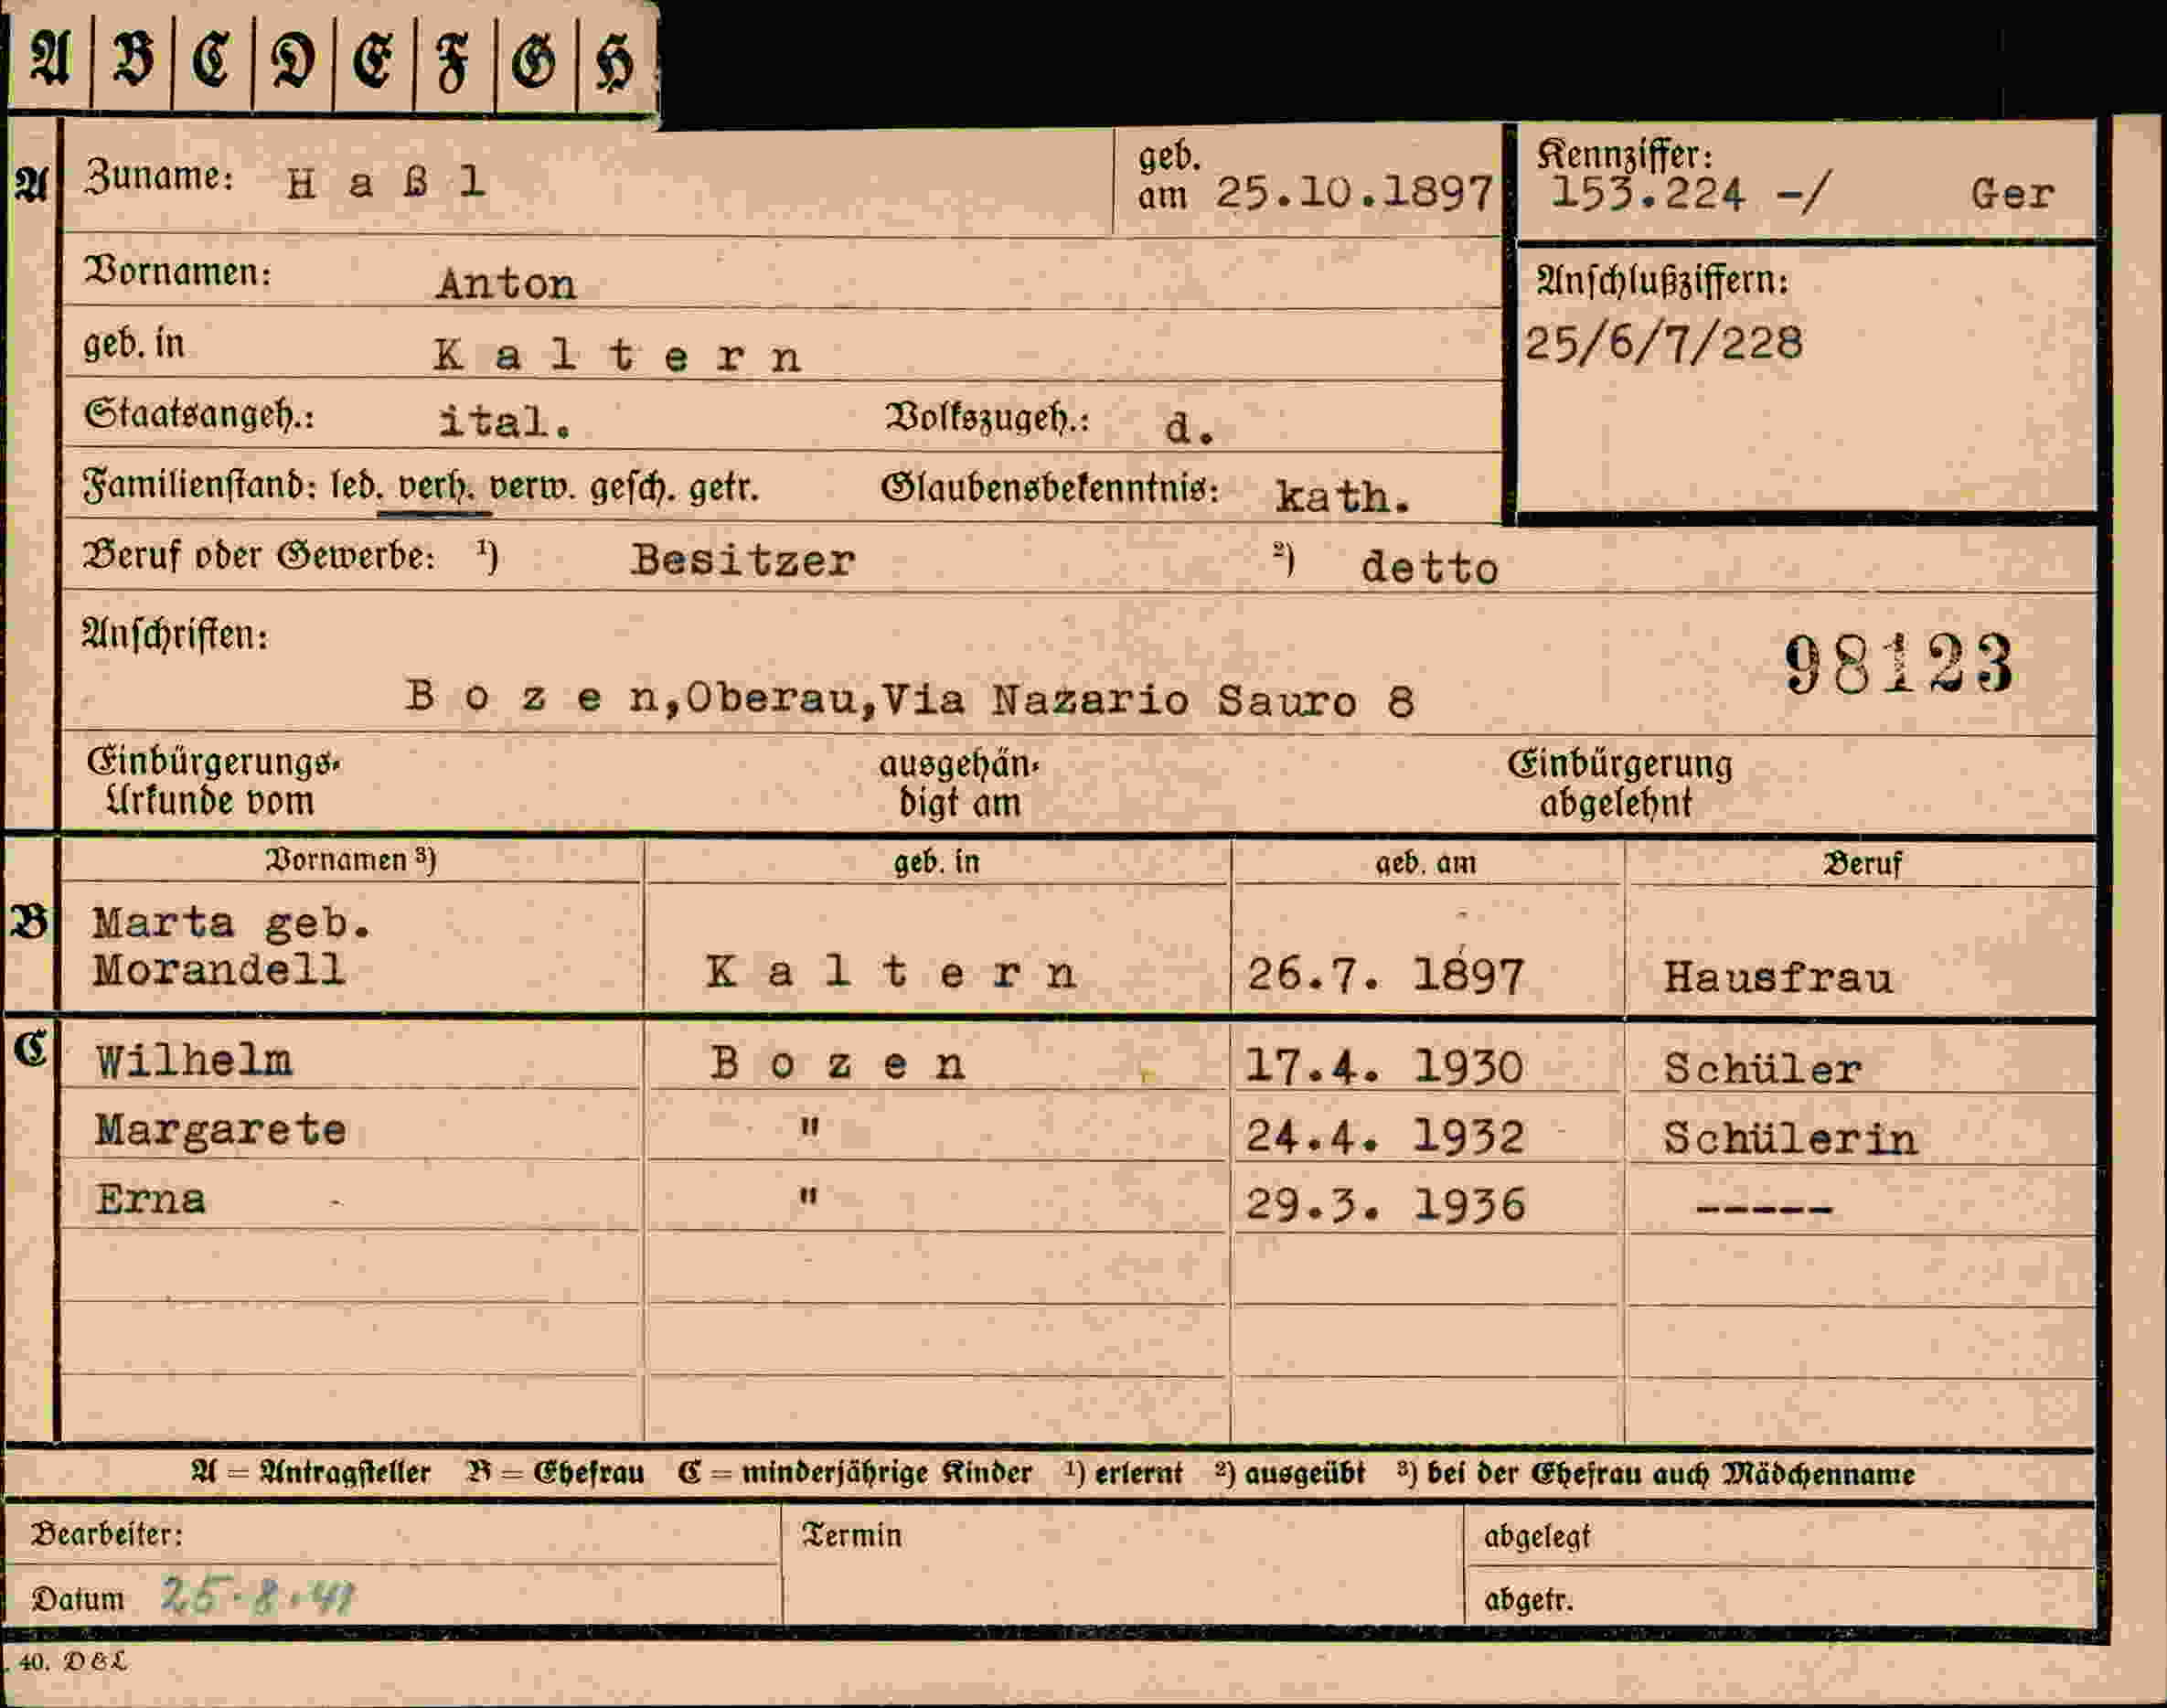 A B C D E F G H
A Zuname: Haßl geb. am 25.10.1897 Kennziffer: 153.224 -/ Ger
Vornamen: Anton Anschlußziffern:
geb. in Kaltern 25/6/7/228
Staatsangeh.: ital. Volkszugeh.: d.
Familienstand: led. verh. verw. gesch. getr. Glaubensbekenntnis: kath.
Beruf oder Gewerbe: ¹) Besitzer ²) detto
Anschriften: 98123
Bozen, Oberau, Via Nazario Sauro 8
Einbürgerungs- ausgehän- Einbürgerung
Urkunde vom digt am abgelehnt
Vornamen ³) geb. in geb. am Beruf
B Marta geb.
Morandell Kaltern 26.7. 1897 Hausfrau
C Wilhelm Bozen 17.4. 1930 Schüler
Margarete " 24.4. 1932 Schülerin
Erna " 29.3. 1936 -----
A = Antragsteller B = Ehefrau C = minderjährige Kinder ¹) erlernt ²) ausgeübt ³) bei der Ehefrau auch Mädchenname
Bearbeiter: Termin abgelegt
Datum 25.8.41 abgetr.
. 40. D&L